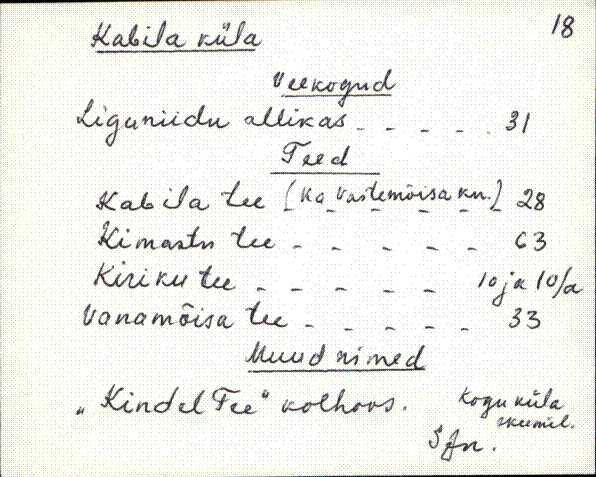 18
Kabila küla
Veekogud
Liguniidu allikas - - - - - 31
Teed
Kabila tee [ka Vastemõisa kn.] 28
Kimastu tee - - - - - 63
Kiriku tee - - - - - 10 ja 10/a
Vanamõisa tee - - - - - 33
Muud nimed
„Kindel Tee" kolhoos. Kogu küla
skeemil.